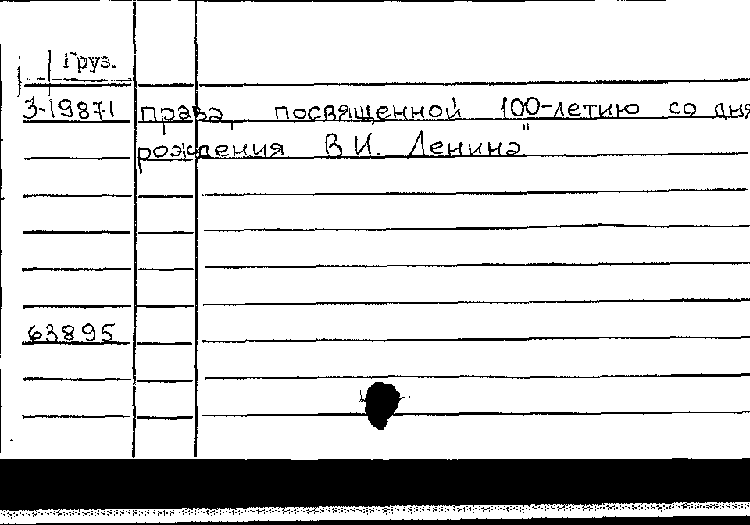 Груз.
3-19871 права, посвященной 100-летию со дня
рождения В И. Ленина"
63895